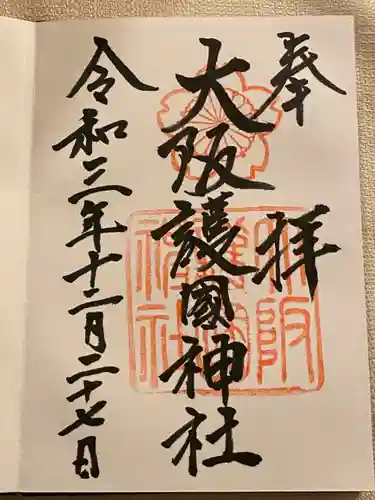 奉拝
大阪護國神社
令和三年十二月二十七日
大阪護國神社